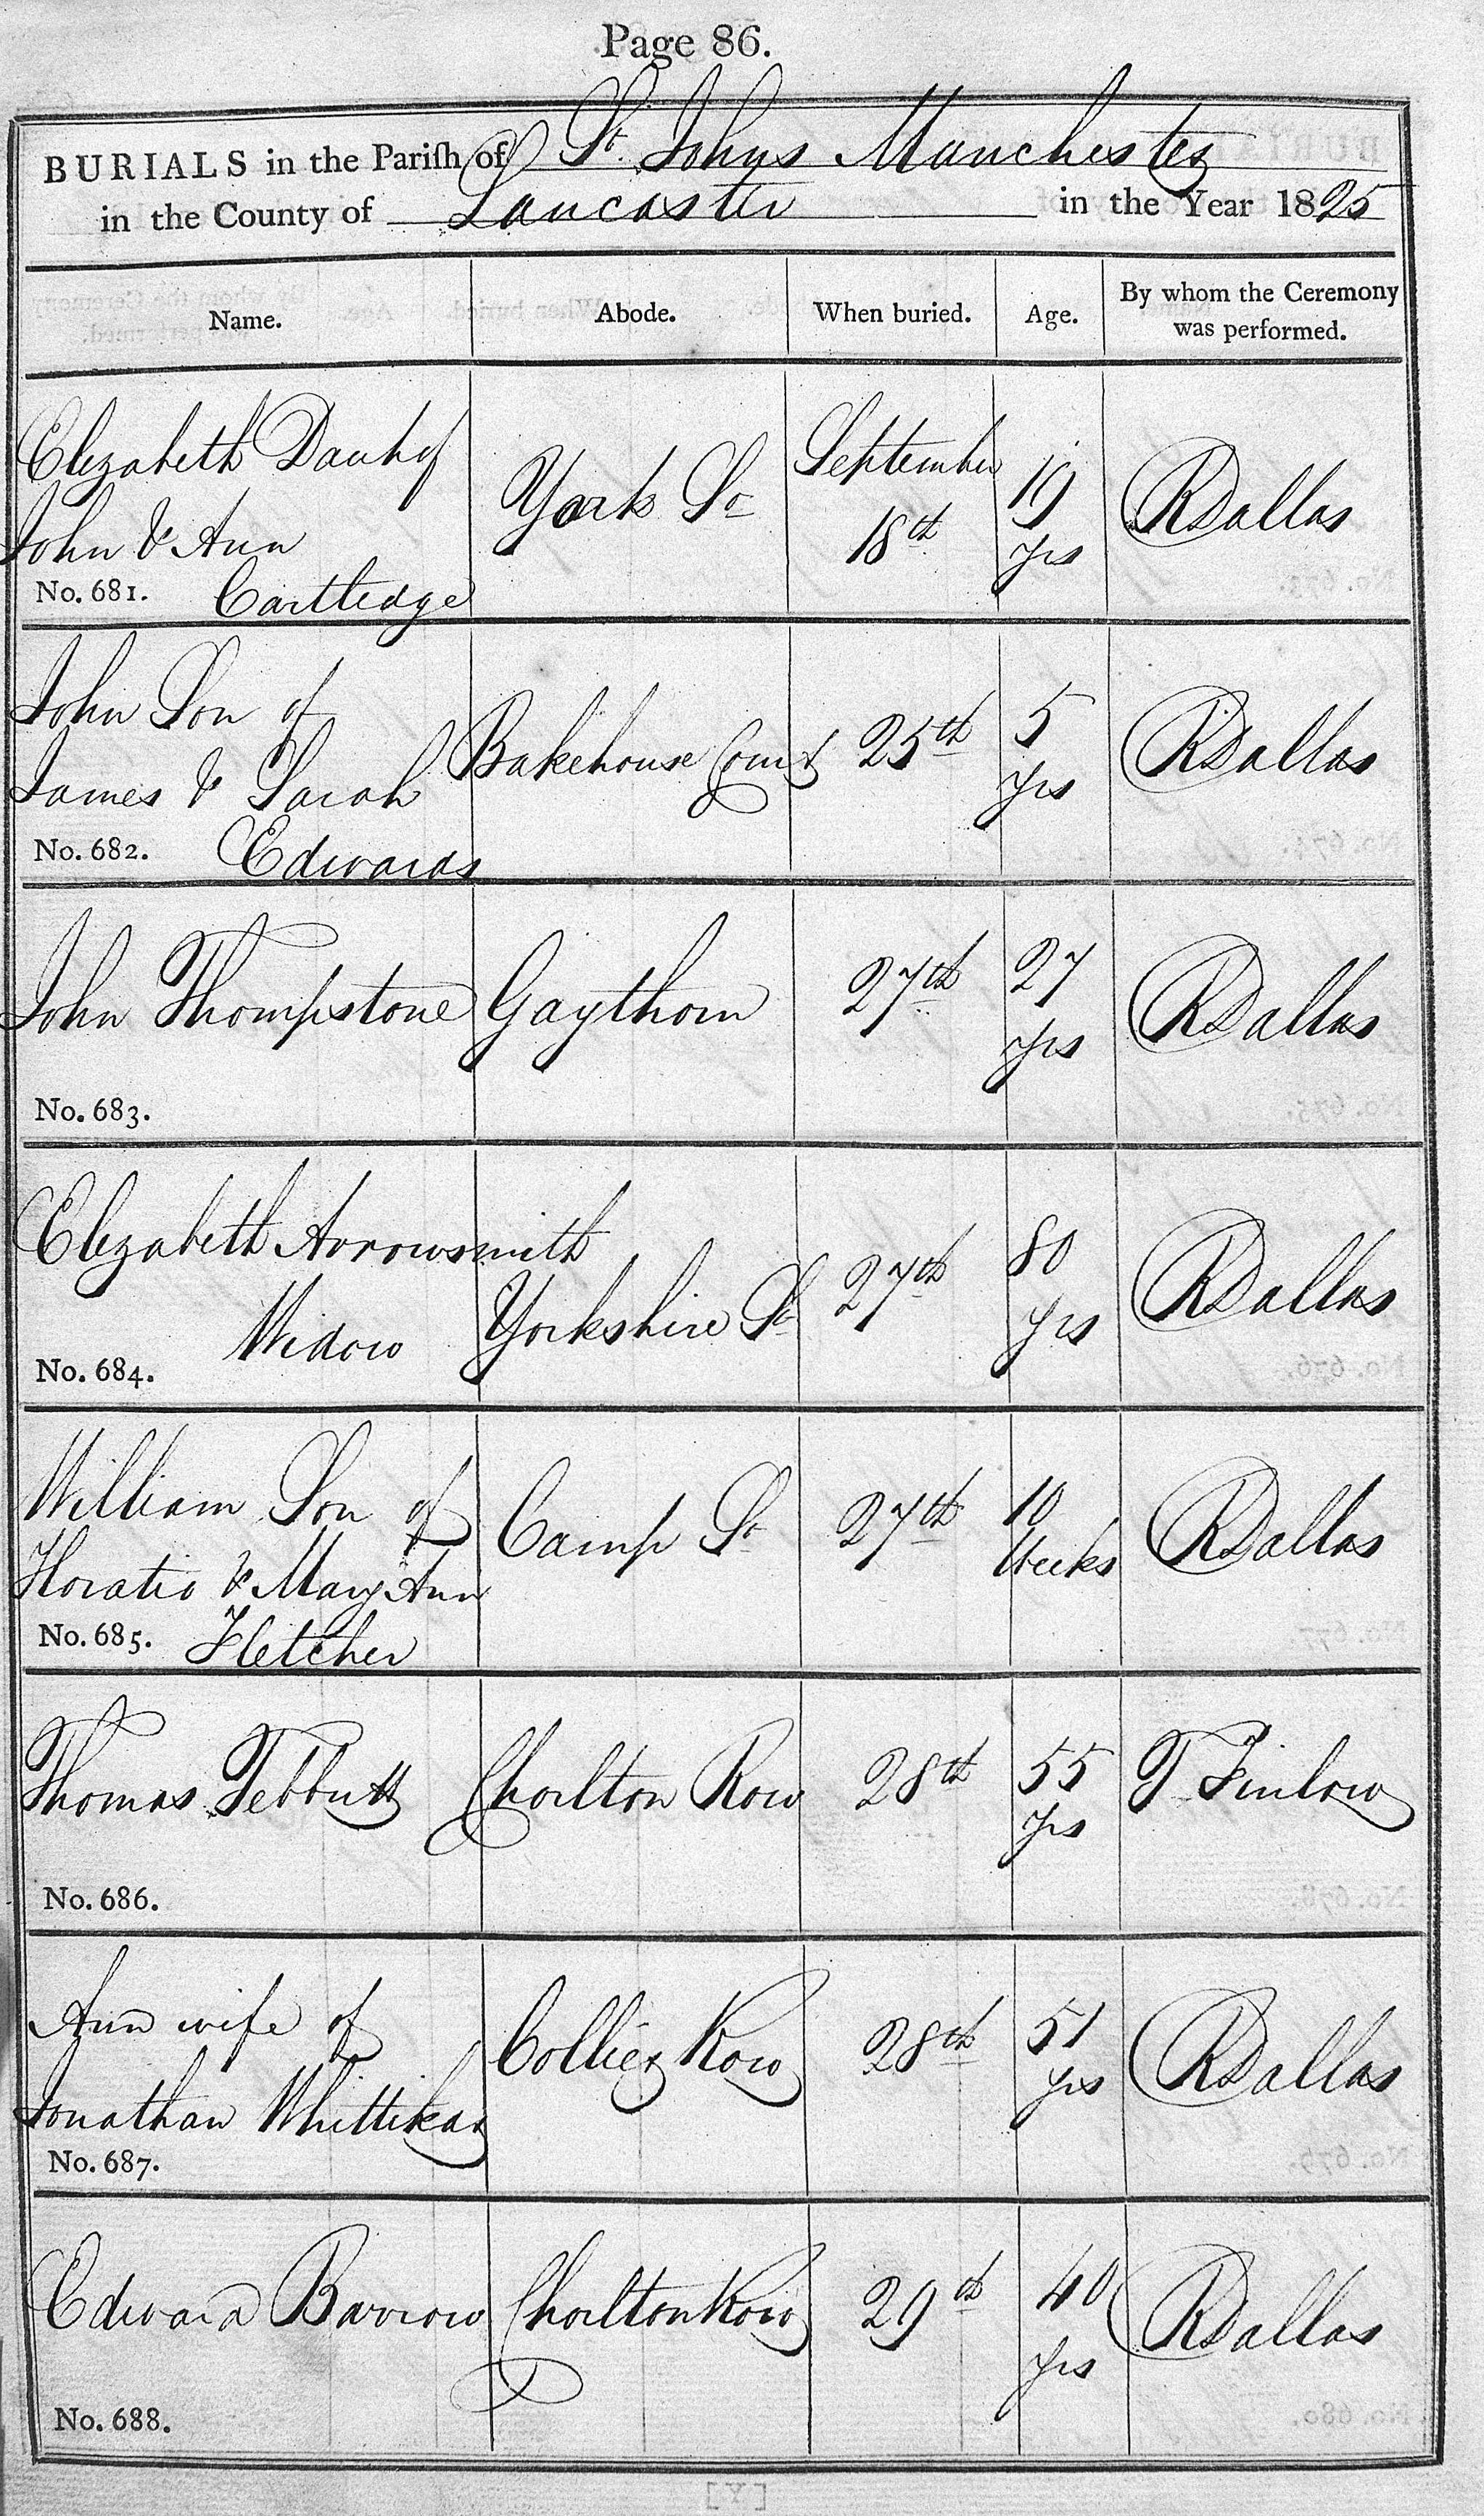 Page 86.
BURIALS in the Pariſh of St. Johns Manchester
in the County of Lancaster in the Year 1825
Name. Abode. When buried. Age. By whom the Ceremony
was performed.
Elizabeth Dauhof
John & Ann
No. 681. Cartledge
York St
September
18th
19
yrs
RDallas
John Son of
James & Sarah
No. 682. Edwards
Bakehouse Court
25th
5
yrs
RDallas
John Thompstone
No. 683.
Gaythorn
27th
27
yrs
RDallas
Elizabeth Arrowsmith
Widow
No. 684.
Yorkshire St
27th
80
yrs
RDallas
William Son of
Horatio & Mary Ann
No. 685. Fletcher
Camp St
27th
10
Weeks
RDallas
Thomas Tebbutt
No. 686.
Chorlton Row
28th
55
yrs
T Finlow
Ann wife of
Jonathan Whittikar
No. 687.
Collier Row
28th
51
yrs
RDallas
Edward Barrow
No. 688.
Chorlton Row
29th
40
yrs
RDallas